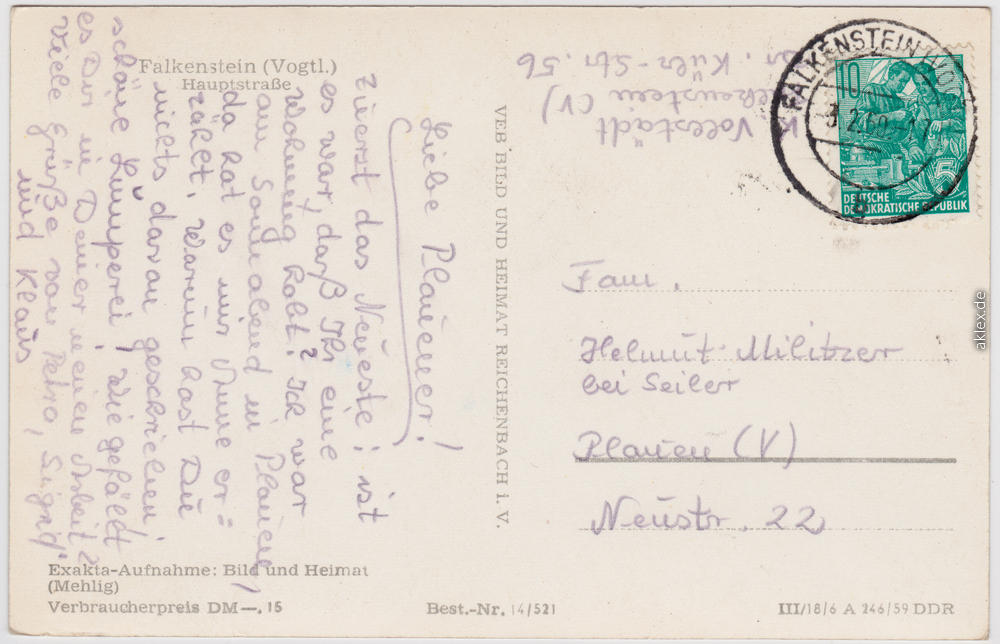 Falkenstein (Vogtl.)
Hauptstraße
Liebe Plauener!
Zuerst das Neueste: ist
es war, daß Ihr eine
Wohnung habt? Ich war
am Sonnabend in Plauen,
da hat es mir Anne er=
zählt. Warum hast Du
nichts davon geschrieben
schöne Lumperei, wie gefällt
es Dir in Deiner neuen Arbeit?
Viele Grüße von Petra, Sigrid
und Klaus
Exakta-Aufnahme: Bild und Heimat
(Mehlig)
Verbraucherpreis DM—,15
Best.-Nr. 14/521
III/18/6 A 246/59 DDR
VEB BILD UND HEIMAT REICHENBACH i. V.
K. Vollstädt
Falkenstein (V)
Dr. Külz-Str. 56
FALKENSTEIN (VOGTL)
10
5
DEUTSCHE
DEMOKRATISCHE REPUBLIK
Fam.
Helmut Militzer
bei Seiler
Plauen (V)
Neustr. 22
aklex.de